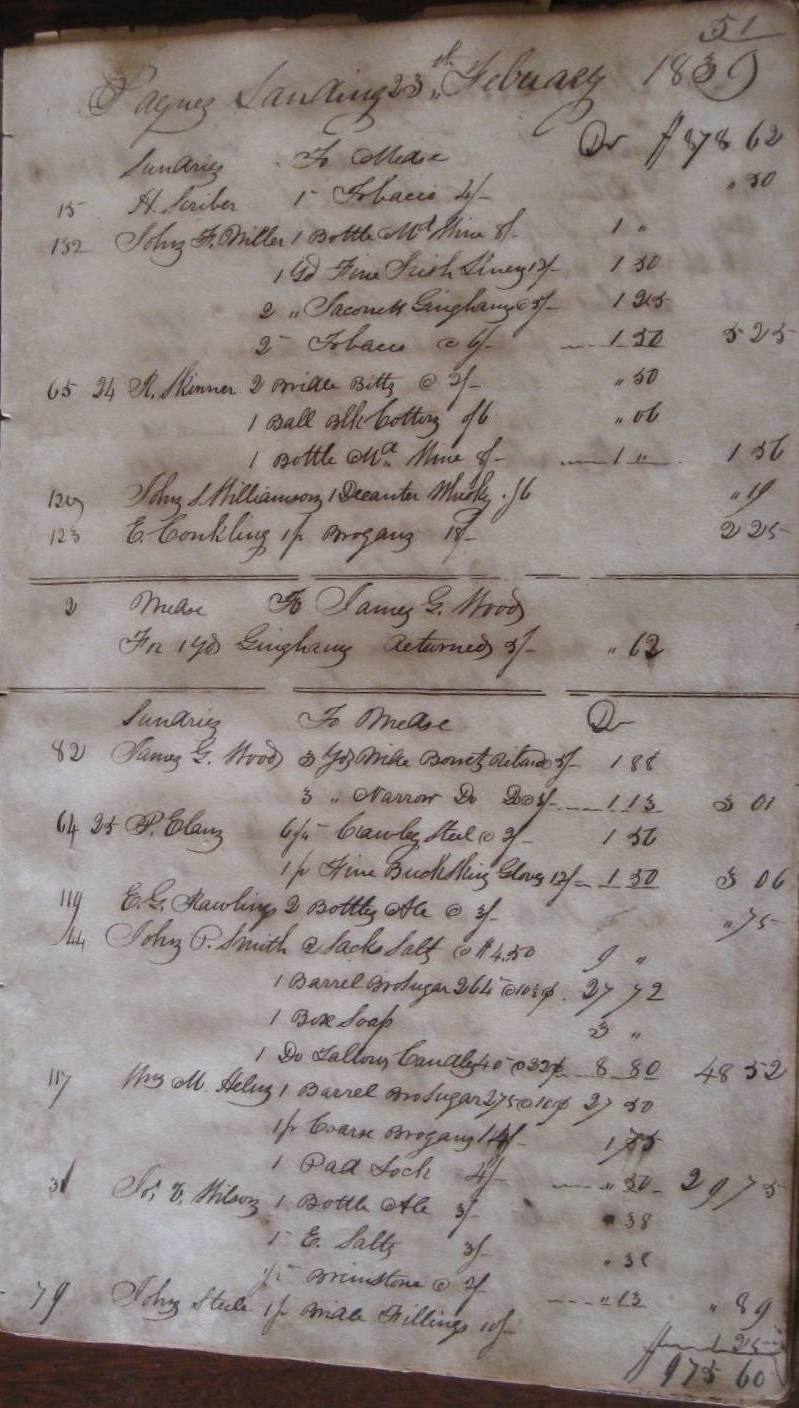 51
Paynes Landing 23th February 1839
Sundries To Mdse Dr $ 878 62
15 H. Scriber 1 Tobacco 4/- " 50
132 John F. Miller 1 Bottle Md Wine 8/- 1 "
1 yd Fine Irish Linen 12/- 1 50
2 " Jaconett Gingham @ 5/- 1 25
2 Tobacco @ 6/- 1 50 5 25
65 24 R. Skinner 2 Bridle Bitts @ 2/- " 50
1 Ball Blk Cotton /6 " 06
1 Bottle Md Wine 8/- 1 " 1 56
129 John S. Williamson 1 Decanter Whisky /6 " 19
123 E. Conkling 1 p Brogans 18/- 2 25
2 Mdse To James G. Wood
For 1 yd Gingham Returned 5/- " 62
Sundries To Mdse Dr
82 James G. Wood 3 yds Wide Bonnet Riband 5/- 1 88
3 " Narrow Do Do 3/- 1 13 3 01
64 25 P. Elans Crawley Steel @ 2/- 1 56
1 p Fine Buckskin Gloves 12/- 1 50 3 06
119 E. G. Rawlings 2 Bottles Ale @ 3/- " 75
44 John P. Smith 2 Sacks Salt @ $4.50 9 "
1 Barrel Bro Sugar 264 @ 10½ ¢ 27 72
1 Box Soap 3 "
1 Do Tallow Candles 40 @ 22¢ 8 80 48 52
117 Wm M. Helm 1 Barrel Bro Sugar 275 @ 10 ¢ 27 50
1 p Coarse Brogans 14/- 1 75
1 Pad Lock 4/- " 50 29 75
31 Jos E. Wilson 1 Bottle Ale 3/- " 38
1 E. Salts 3/- " 38
Brimstone @ 2/- " 13 " 89
79 John Steele 1 p Bridle Fillings 10/- 1 25
$ 975 60